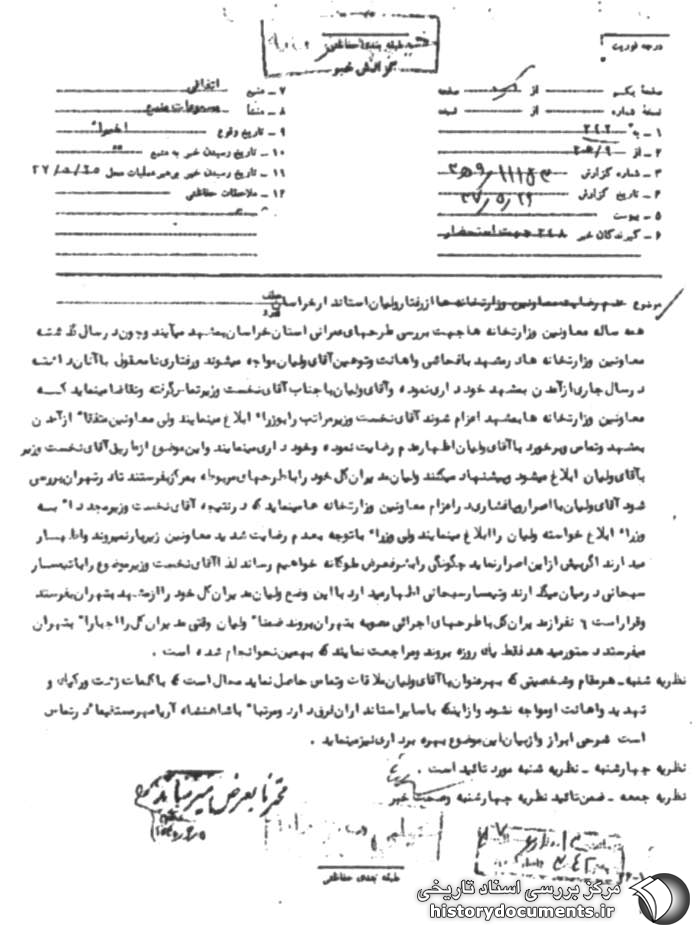 درجه فوریت
طبقه بندی حفاظتی
گزارش خبر
صفحهٔ یکم از صفحه
نسخهٔ شماره از نسخه
۱ ـ به ۳۴۲
۲ ـ از ۹/ه۲
۳ ـ شماره گزارش
۴ ـ تاریخ گزارش ۳۷/۵/۲۶
۵ ـ پیوست
۶ ـ گیرندگان خبر ۲۴۸ جهت استحضار
۷ ـ منبع اتفاقی
۸ ـ منشأ مسموعات منبع
۹ ـ تاریخ وقوع اخیرا"
۱۰ ـ تاریخ رسیدن خبر به منبع
۱۱ ـ تاریخ رسیدن خبر برهبر عملیات محل
۱۲ ـ ملاحظات حفاظتی
موضوع عدم رضایت معاونین وزارتخانه ها از رفتار ولیان استاندار خراسان
همه ساله معاونین وزارتخانه ها جهت بررسی طرحهای عمرانی استان خراسان بمشهد میآیند و چون در سال گذشته
معاونین وزارتخانه ها در مشهد با فحاشی و اهانت و توهین آقای ولیان مواجه میشوند و رفتاری نامعقول با آنان داشته
در سال جاری از آمدن بمشهد خودداری نموده و آقای ولیان با جناب آقای نخست وزیر تماس گرفته و تقاضا مینماید که
معاونین وزارتخانه ها بمشهد اعزام شوند آقای نخست وزیر مراتب را بوزراء ابلاغ مینمایند ولی معاونین متفقا" از آمدن
بمشهد و تماس و برخورد با آقای ولیان اظهار عدم رضایت نموده و خودداری مینمایند و این موضوع از طریق آقای نخست وزیر
بآقای ولیان ابلاغ میشود و پیشنهاد میکنند ولیان مدیران کل خود را با طرحهای مربوطه بمرکز بفرستند تا در تهران بررسی
شود آقای ولیان با اصرار و پافشاری در اعزام معاونین وزارتخانه ها مینماید که در نتیجه آقای نخست وزیر مجددا" به
وزراء ابلاغ خواسته ولیان را ابلاغ مینمایند ولی وزراء با توجه بعدم رضایت شدید معاونین زیر بار نمیروند و اظهار
میدارند اگر بیش از این اصرار نماید چگونگی را بشرفعرض ملوکانه خواهیم رساند لذا آقای نخست وزیر موضوع را با تیمسار
سبحانی در میان میگذارند و تیمسار سبحانی اظهار میدارد با این وضع ولیان مدیران کل خود را از مشهد بتهران بفرستد
و قرار است ۶ نفر از مدیران کل با طرحهای اجرائی مصوبه بتهران بروند ضمنا" ولیان وقتی مدیران کل را اجبارا" بتهران
میفرستد دستور میدهد فقط یک روزه بروند و مراجعت نمایند که بهمین نحو انجام شده است .
نظریه شنبه ـ هر مقام و شخصیتی که بهر عنوان با آقای ولیان ملاقات و تماس حاصل نماید محال است که با کلمات زشت و رکیک و
تهدید و اهانت او مواجه نشود و از اینکه با سایر استانداران فرق دارد و مرتبا" با شاهنشاه آریامهر مستقیما" در تماس
است شرحی ابراز و از بیان این موضوع بهره برداری نیز مینماید .
نظریه چهارشنبه ـ نظریه شنبه مورد تائید است .
نظریه جمعه ـ ضمن تائید نظریه چهارشنبه وصحت خبر
طبقه بندی حفاظتی
مرکز بررسی اسناد تاریخی
historydocuments.ir